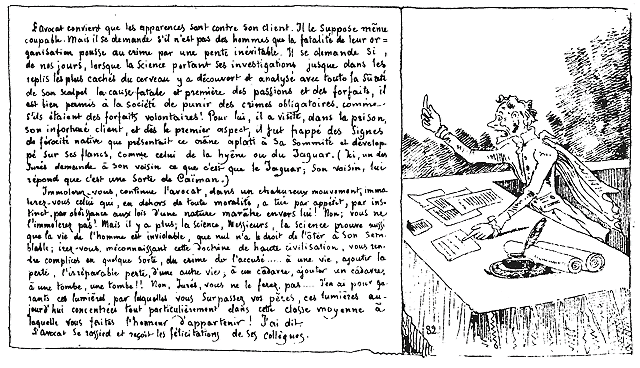 L'avocat convient que les apparences sont contre son client. Il le suppose même
coupable. Mais il se demande s'il n'est pas des hommes que la fatalité de leur or=
ganisation pousse au crime par une pente inévitable. Il se demande si,
de nos jours, lorsque la science portant ses investigations jusque dans les
replis les plus cachés du cerveau y a découvert et analysé avec toute la sûreté
de son scalpel la cause fatale et première des passions et des forfaits, il
est bien permis à la société de punir des crimes obligatoires, comme
s'ils étaient des forfaits volontaires! Pour lui, il a visité, dans la prison,
son infortuné client, et dès le premier aspect, il fut frappé des signes
de férocité native que présentait ce crâne aplati à sa sommité et dévelop=
pé sur ses flancs, comme celui de la hyène ou du Jaguar. (Ici, un des
Jurés demande à son voisin ce que c'est que le Jaguar; Son voisin, lui
répond que c'est une sorte de Caïman.)
Immolerez-vous, continue l'avocat, dans un chaleureux mouvement, immo=
lerez-vous celui qui, en dehors de toute moralité, a tué par appétit, par ins=
tinct, par obéissance aux lois d'une nature marâtre envers lui! Non; vous ne
l'immolerez pas! Mais il y a plus; la science, Messieurs, la science prouve aussi
que la vie de l'homme est inviolable, que nul n'a le droit de l'ôter à son sem=
blable; irez-vous, méconnaissant cette doctrine de haute civilisation, vous ren=
dre complices en quelque sorte, du crime de l'accusé..... à une vie, ajouter la
perte, l'irréparable perte, d'une autre vie; à un cadavre, ajouter un cadavre,
à une tombe, une tombe!! Non, Jurés, vous ne le ferez pas.... J'en ai pour ga=
rants ces lumières par lesquelles vous surpassez vos pères, ces lumières au=
jourd'hui concentrées tout particulièrement dans cette classe moyenne à
laquelle vous faites l'honneur d'appartenir! J'ai dit.
L'avocat se rassied et reçoit les félicitations de ses collègues.
32